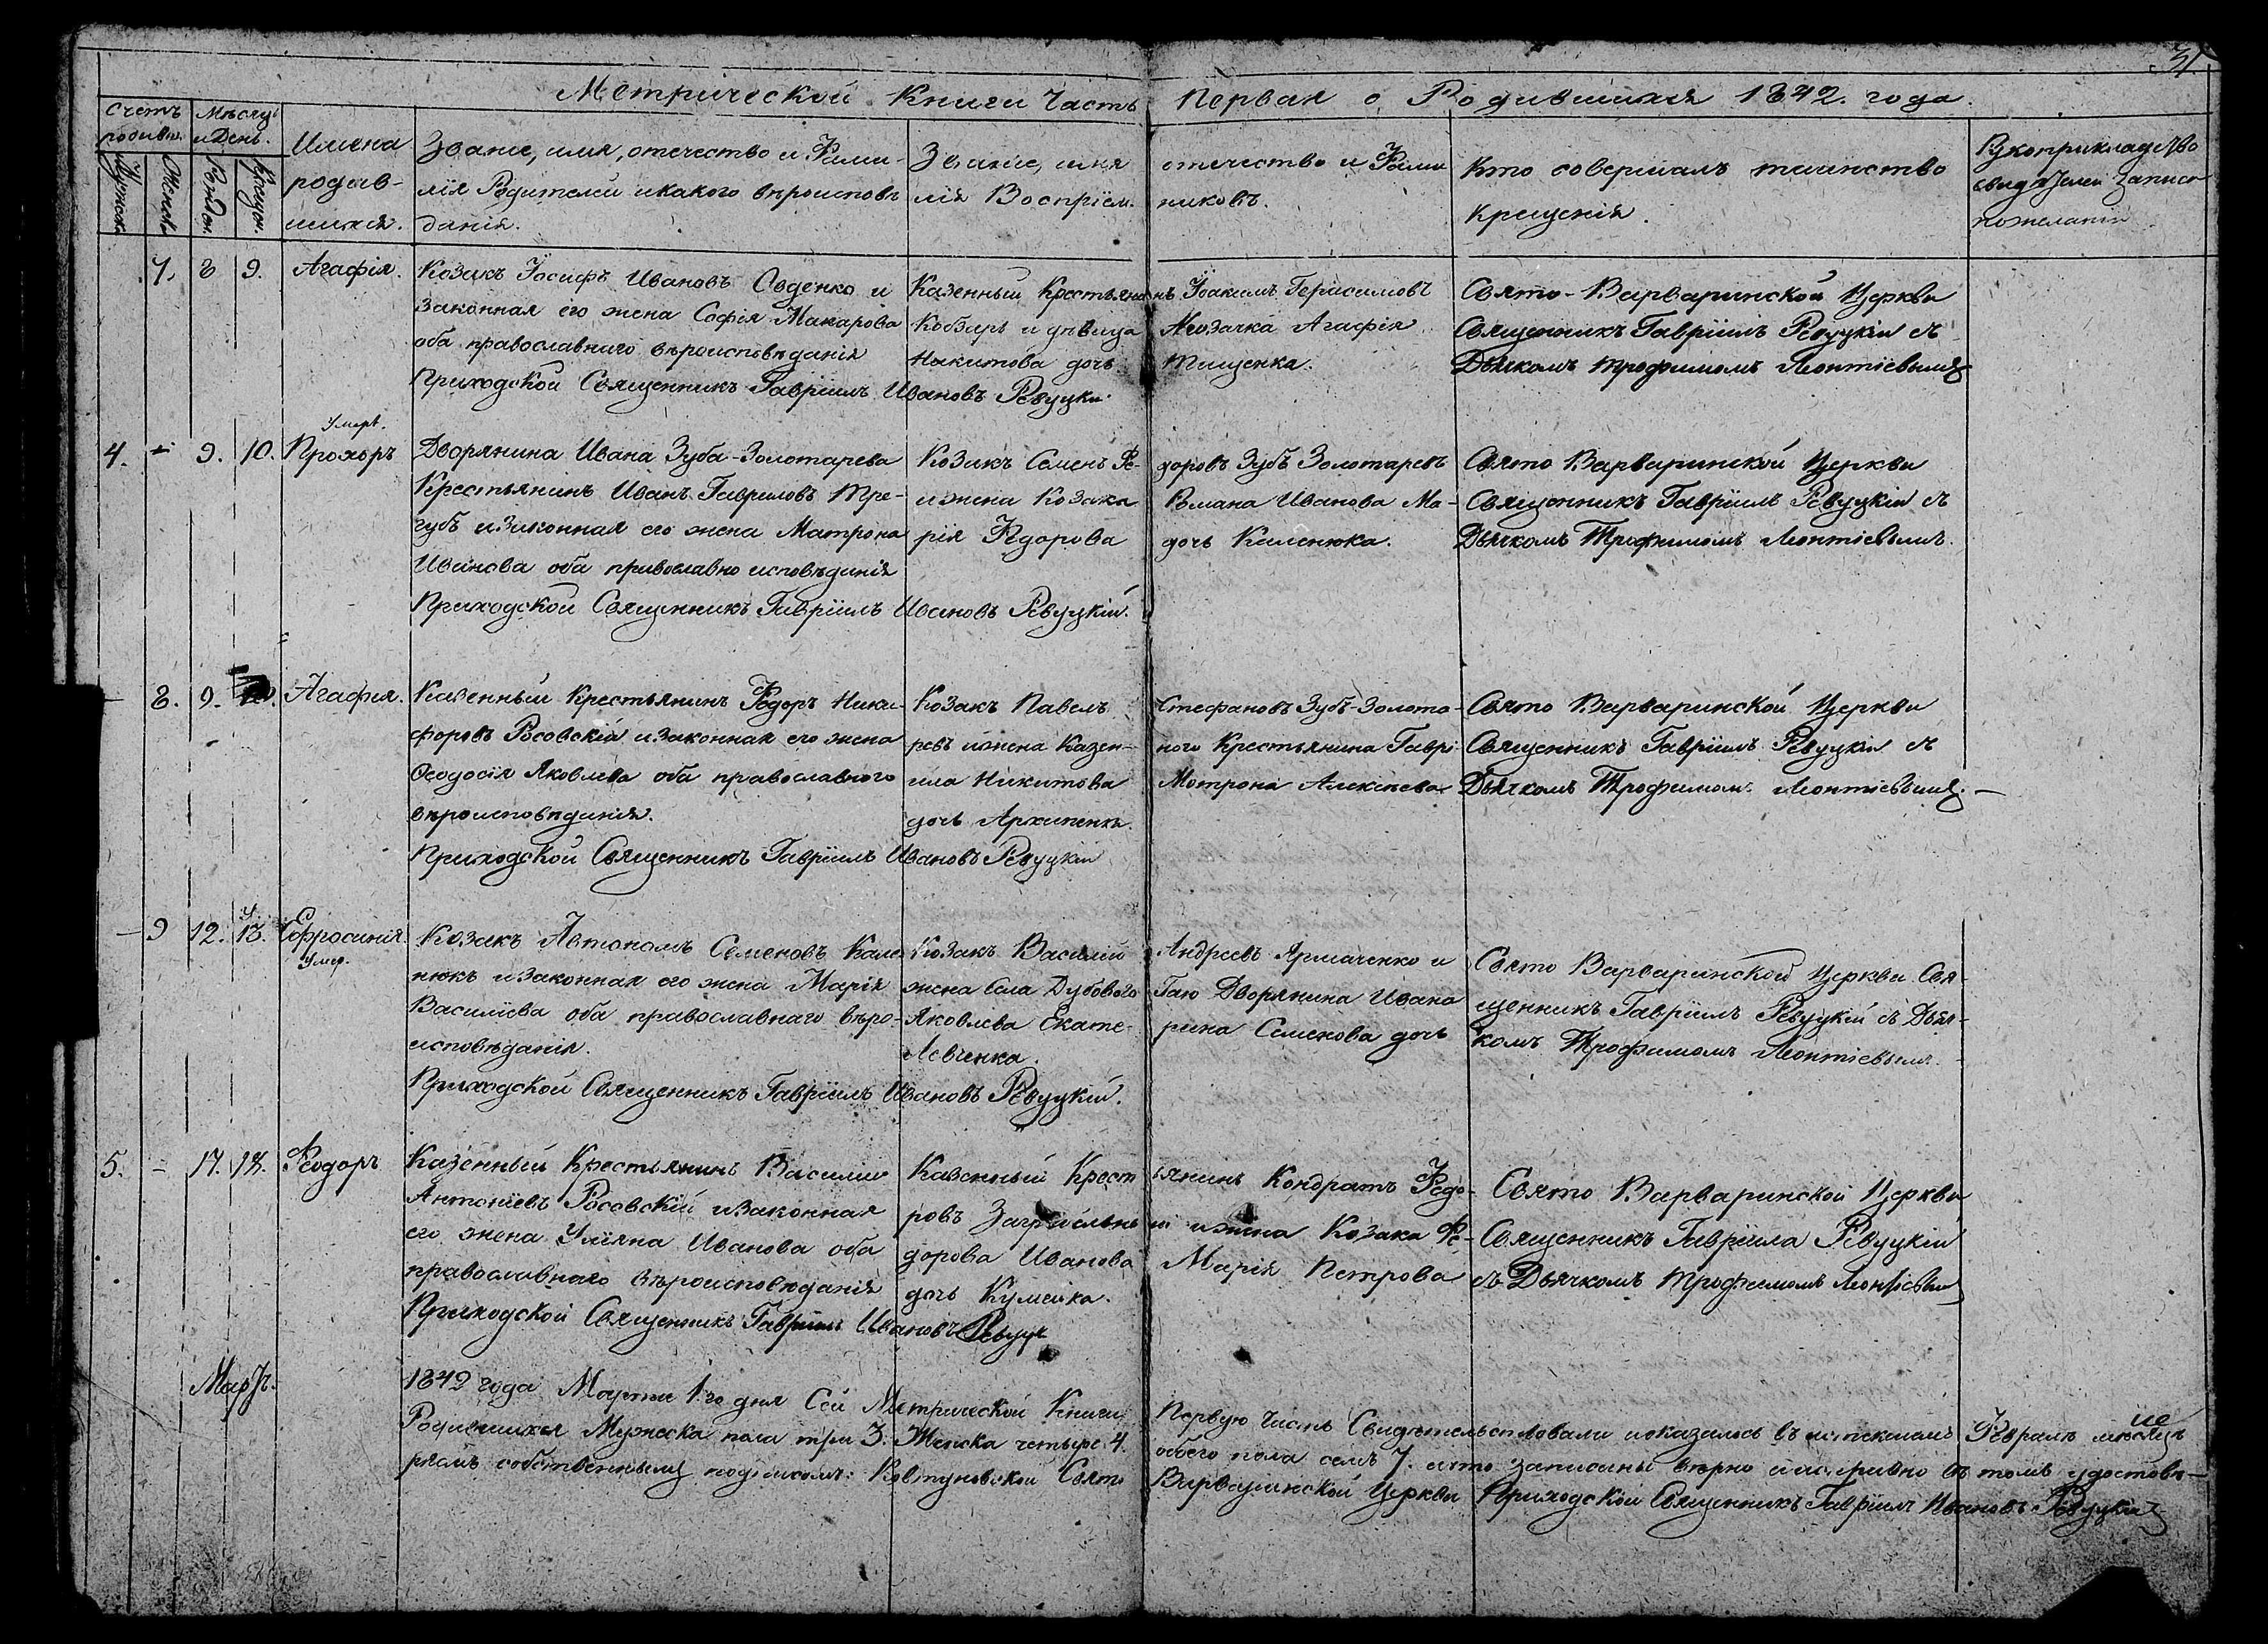 31
Метрической Книги Часть Первая о Родившихся 1842. года.
Счетъ родивш.
Мѣсяцъ и День.
Мужеск.
Женск.
Рожден.
Крещен.
Имена
родив-
шихся.
Званіе, имя, отечество и Фами-
лія Родителей и какого вѣроисповѣ
данія.
Званіе, имя отечество и Фами
лія Воспріем. никовъ.
Кто совершалъ таинство
Крещенія.
Рукоприкладство
свидѣтелей записи
по желанію
7. 8 9. Агафія.
Козакъ Іосифъ Ивановъ Овденко и
законная его жена Софія Макарова
оба православнаго вѣроисповѣданія
Приходской Священникъ Гавріилъ Ивановъ Ревуцкій
Казенный Крестьянинъ Іоакимъ Герасимовъ
Кобзарь и дѣвица Козачка Агафія
Никитова дочь Тищенка.
Свято-Варваринской Церкви
Священникъ Гавріилъ Ревуцкій съ
Дьячкомъ Трофимомъ Леонтіевымъ
Умерѣ.
4. - 9. 10. Прохоръ
Дворянина Ивана Зуба-Золотарева
Крестьянинъ Иванъ Гавриловъ Тре-
губъ и законная его жена Матрона
Иванова оба православно исповѣданія
Приходской Священникъ Гавріилъ Ивановъ Ревуцкій.
Козакъ Семенъ Фе- доровъ Зубъ Золотаревъ
и жена Козака Романа Иванова Ма-
рія Федорова дочь Каленюка.
Свято Варваринской Церкви
Священникъ Гавріилъ Ревуцкій съ
Дьячкомъ Трофимомъ Леонтіевымъ.
- 8. 9. Агафія.
Казенный Крестьянинъ Федоръ Ники-
форовъ Росовскій и законная его жена
Феодосія Яковлева оба православного
вѣроисповѣданія.
Приходской Священникъ Гавріилъ Ивановъ Ревуцкій
Козакъ Павелъ Стефановъ Зубъ-Золота-
ревъ и жена Казен- ного Крестьянина Гаврі
ила Никитова Мотрона Алексѣева
дочь Архипенка.
Свято Варваринской Церкви
Священникъ Гавріилъ Ревуцкій съ
Дьячкомъ Трофимом. Леонтіевымъ. -
- 9 12. 13. Ефросинія.
Умер.
Козакъ Автономъ Семеновъ Кале
нюкъ и законная его жена Марія
Василіева оба православнаго вѣро-
исповѣданія.
Приходской Священникъ Гавріилъ Ивановъ Ревуцкій.
Козакъ Василій Андреевъ Ярмаченко и
жена Села Дубового Гаю Дворянина Ивана
Яковлева Екате- рина Семенова дочь
Левченка.
Свято Варваринской Церкви Свя-
щенникъ Гавріилъ Ревуцкій съ Дьяч-
комъ Трофимомъ Леонтіевымъ.
5. - 17. 18. Феодоръ
Казенный Крестьянинъ Василій
Антоніевъ Росовскій и законная
его жена Уліяна Иванова оба
православнаго вѣроисповѣданія
Приходской Священникъ Гавріилъ Ивановъ Ревуцк
Казенный Крест ьянинъ Кондратъ Федо-
ровъ и жена Козака Фе-
дорова Иванова Марія Петрова
дочь Кумейка.
Свято Варваринской Церкви
Священникъ Гавріила Ревуцкій
съ Дьячкомъ Трофимомъ Леонтіевым
Мартъ.
1842 года Марта 1го дня Сей Метрической Книги Первую Часть Свидѣтельствовали и оказалось въ истекшемъ Февралѣ мѣсяцѣ
Родившихся Мужеска пола три 3. Женска четыре 4. обоего пола семъ 7. и что записаны вѣрно и исправно въ томъ удостовѣ-
ряемъ собственнымъ подписомъ: Ковтуновской Свято Варваринской Церкви Приходской Священникъ Гавріилъ Ивановъ Ревуцкій